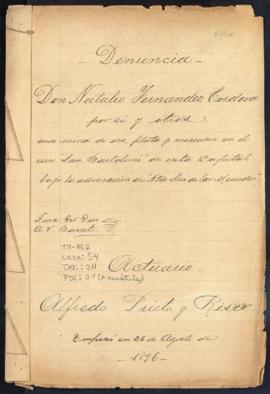 Denuncia
Don Natalio Fernandez Cordova
por sí y otros:
una mina de oro, plata y mercurio en el
"San Bartolomé" de esta Capital
bajo la advocacion de "Ntra Sra de la Merced"
Juez Dr Don
A. V. Barreto
TM-RE2
CAJA: 54
DOC: 211
FOL: 07 (+ carátula)
Actuario
Alfredo Prieto y Risco
Empezó en 26 de Agosto de
- 1896 -